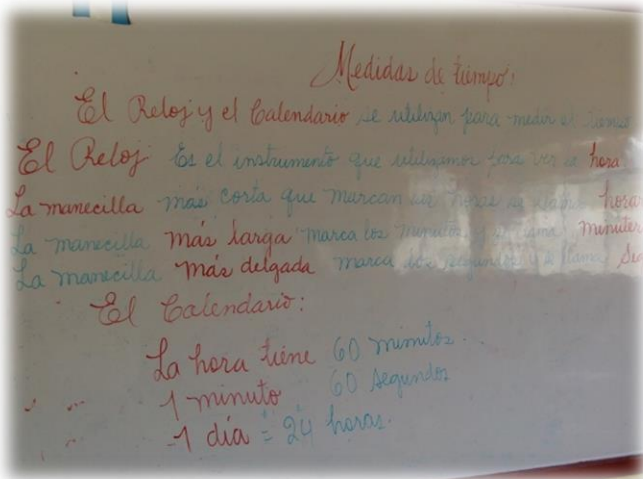 Medidas de tiempo:
El Reloj y el Calendario se utilizan para medir el tiempo
El Reloj Es el instrumento que utilizamos para ver la hora
La manecilla más corta que marcan las horas se llama horar
La manecilla más larga marca los minutos y se llama minuter
La manecilla más delgada marca los segundos y se llama Seg
El Calendario:
La hora tiene 60 minutos.
1 minuto 60 segundos
-1 día = 24 horas.